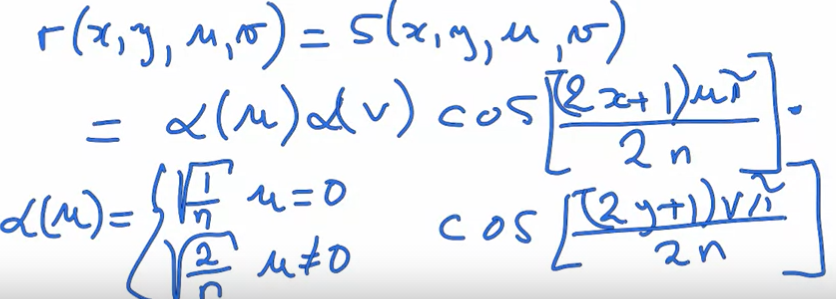 r(x,y,u,v) = s(x,y,u,v)
= α(u)α(v) cos[(2x+1)uπ / 2n] ·
cos[(2y+1)vπ / 2n]
α(u) = { √(1/n) u=0
√(2/n) u≠0